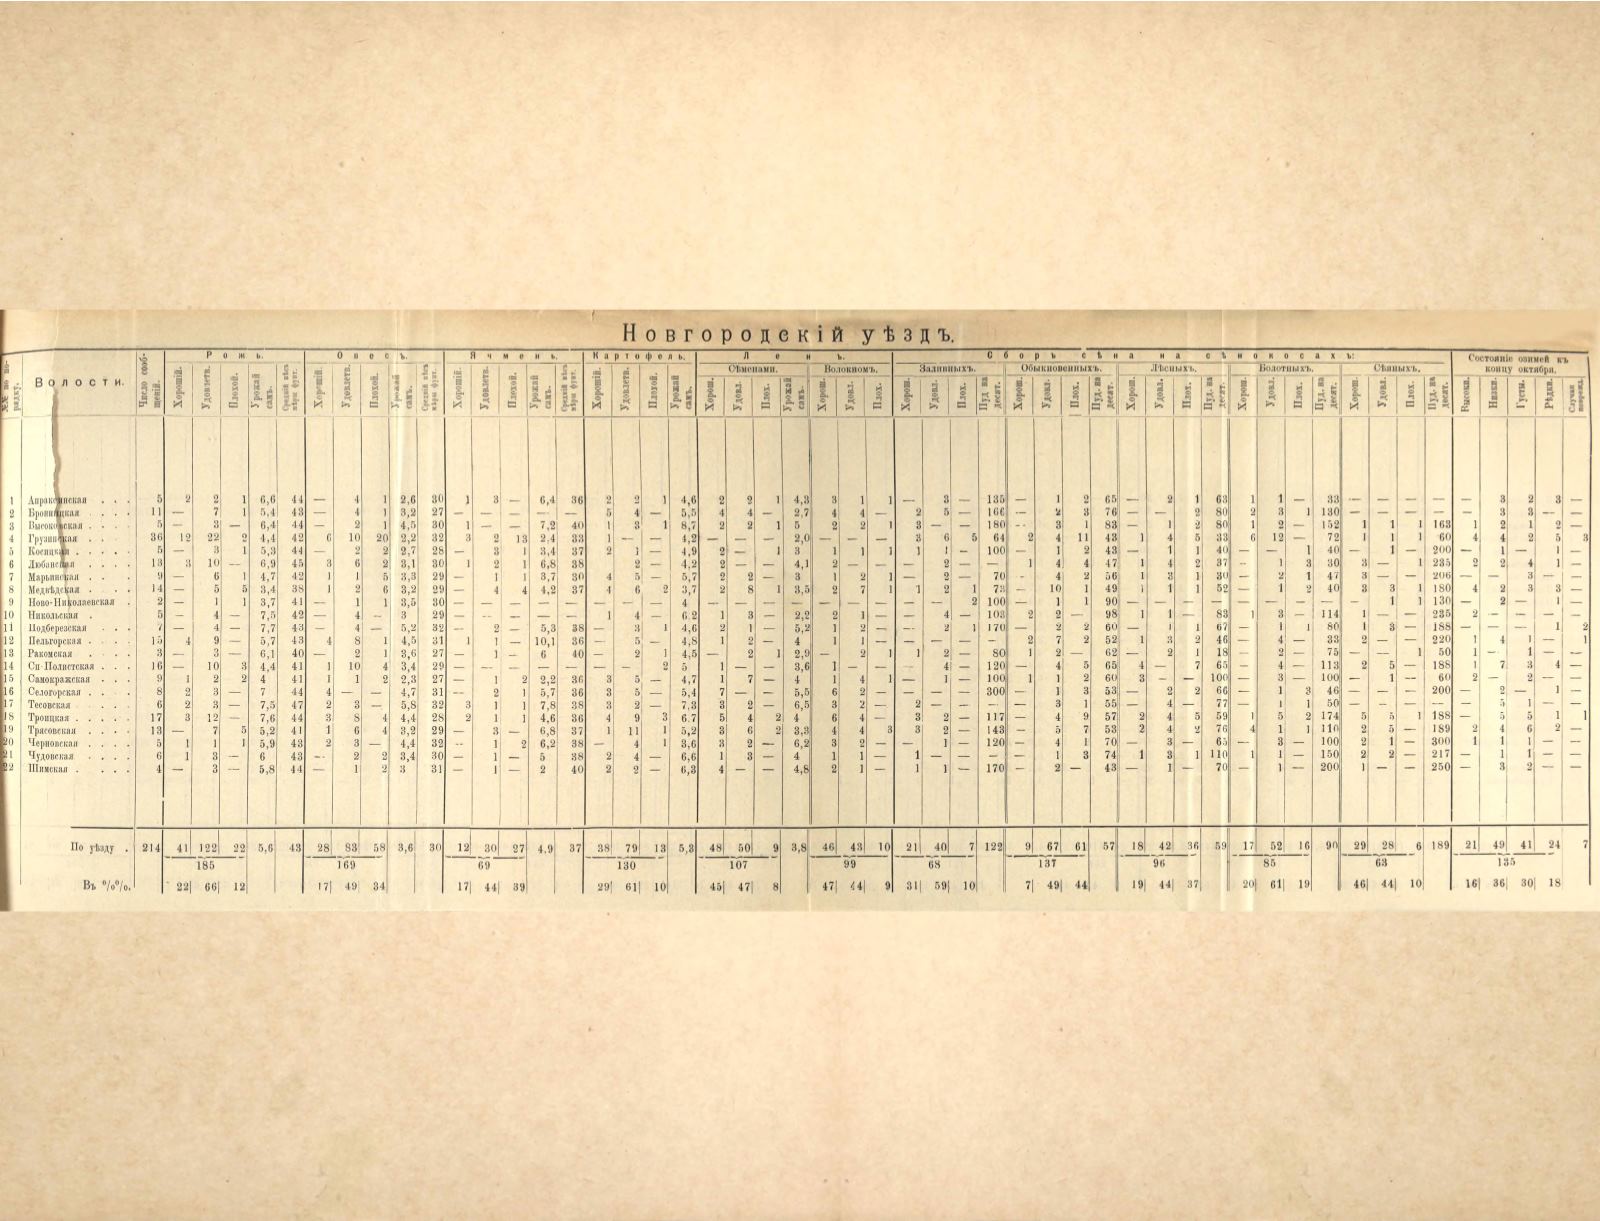 Новгородскій уѣздъ.
№№ по порядку. Волости. Число сообщеній. Рожь. Овесъ. Ячмень. Картофель. Ленъ. Сборъ сѣна на сѣнокосахъ: Состояніе озимей къ концу октября.
Сѣменами. Волокномъ. Заливныхъ. Обыкновенныхъ. Лѣсныхъ. Болотныхъ. Сѣянныхъ.
Хорошій. Удовлетв. Плохой. Урожай самъ. Средній вѣсъ мѣры фунт. Хорошій. Удовлетв. Плохой. Урожай самъ. Средній вѣсъ мѣры фунт. Хорошій. Удовлетв. Плохой. Урожай самъ. Средній вѣсъ мѣры фунт. Хорошій. Удовлетв. Плохой. Урожай самъ. Хорош. Удовл. Плох. Урожай самъ. Хорош. Удовл. Плох. Хорош. Удовл. Плох. Пуд. на десят. Хорош. Удовл. Плох. Пуд. на десят. Хорош. Удовл. Плох. Пуд. на десят. Хорош. Удовл. Плох. Пуд. на десят. Хорош. Удовл. Плох. Пуд. на десят. Высоки. Низки. Густы. Рѣдки.
1 Апраксинская 5 2 2 1 6,6 44 — 4 1 2,6 30 1 3 — 6,4 36 2 2 1 4,6 2 2 1 4,3 3 1 1 — 3 — 135 — 1 2 65 — 2 1 63 1 1 — 33 — — — — — 3 2 3 —
2 Бронницкая 11 — 7 1 5,4 43 — 4 1 3,2 27 — — — — — 5 4 — 5,5 4 4 — 2,7 4 4 — 2 5 — 166 — 2 3 76 — — 2 80 2 3 1 130 — — — — — 3 3 — —
3 Высоковская 5 — 3 — 6,4 44 — 2 1 4,5 30 1 — — 7,2 40 1 3 1 8,7 2 2 1 5 2 2 1 3 — — 180 — 3 1 83 — 1 2 80 1 2 — 152 1 1 1 163 1 2 1 2 —
4 Грузинская 36 12 22 2 4,4 42 6 10 20 2,2 32 3 2 13 2,4 33 1 — — 4,2 — — — 2,0 — — — 3 6 5 64 2 4 11 43 1 4 5 33 6 12 — 72 1 1 1 60 4 4 2 5 3
5 Косицкая 5 — 3 1 5,3 44 — 2 2 2,7 28 — 3 1 3,4 37 2 1 — 4,9 2 — 1 3 1 1 1 1 1 — 100 — 1 2 43 — 1 1 40 — — 1 40 — 1 — 200 — 1 — 1 —
6 Любанская 13 3 10 — 6,9 45 3 6 2 3,1 30 1 2 1 6,8 38 2 — 4,2 2 — — 4,1 2 — — — 2 — — 1 4 4 47 1 4 2 37 — 1 3 30 3 — 1 235 2 2 4 1 —
7 Марьинская 9 — 6 1 4,7 42 1 1 5 3,3 29 — 1 1 3,7 30 4 5 — 5,7 2 2 — 3 1 2 1 — 2 — 70 4 2 56 1 3 1 30 — 2 1 47 3 — — 206 — — 3 — —
8 Медвѣдская 14 — 5 5 3,4 38 1 2 6 3,2 29 — 4 4 4,2 37 4 6 2 3,7 2 8 1 3,5 2 7 1 1 2 1 73 — 10 1 49 1 1 1 52 — 1 2 40 3 3 1 180 4 2 3 3 —
9 Ново-Николаевская 2 — 1 1 3,7 41 — 1 1 3,5 30 — — — — — — — — 4 — — — — — — — — — 2 100 — 1 1 90 — — — — — — — — — 1 1 130 — 2 — 1 —
10 Никольская 5 — 4 — 7,5 42 — 4 — 3 29 — — — — — 1 4 — 6,2 1 3 — 2,2 2 1 — — 4 — 103 2 2 — 98 1 1 — 83 1 3 — 114 1 — — 235 2 — — — —
11 Подберезская 7 — 4 — 7,7 43 — 4 — 5,2 32 — 2 — 5,3 38 — 3 1 4,6 2 1 — 5,2 1 2 — — 2 1 170 — 2 2 60 — 1 1 67 — 1 1 80 1 3 — 188 — — — 1 2
12 Пельгорская 15 4 9 — 5,7 43 4 8 1 4,5 31 1 1 — 10,1 36 — 5 — 4,8 1 2 — 4 1 1 — — — — — 2 7 2 52 1 3 2 46 — 4 — 33 2 — — 220 1 4 1 — 1
13 Ракомская 3 — 3 — 6,1 40 — 2 1 3,6 27 — 1 — 6 40 — 2 1 4,5 — 2 1 2,9 — 2 1 1 2 — 80 1 2 — 62 — 2 1 18 — 2 — 75 — — 1 50 1 — 1 — —
14 Сп-Полистская 16 — 10 3 4,4 41 1 10 4 3,4 29 — — — — — — — 2 5 1 — — 3,6 1 — — — 4 — 120 — 4 5 65 4 — 7 65 — 4 — 113 2 5 — 188 1 7 3 4 —
15 Самокражская 9 1 2 2 4 41 1 1 2 2,3 27 — 1 2 2,2 36 3 5 — 4,7 1 7 — 4 1 4 1 — 1 — 100 1 1 2 60 3 — — 100 — 3 — 100 — 1 — 60 2 — 2 — —
16 Селогорская 8 2 3 — 7 44 4 — — 4,7 31 — 2 1 5,7 36 3 5 — 5,4 7 — — 5,5 6 2 — — — — 300 — 1 3 53 — 2 2 66 — 1 3 46 — — — 200 — 2 — 1 —
17 Тесовская 6 2 3 — 7,5 47 2 3 — 5,8 32 3 1 1 7,8 38 3 2 — 7,3 3 2 — 6,5 3 2 — 2 — — — — 3 1 55 — 4 — 77 — 1 1 50 — — — — — 5 1 — —
18 Троицкая 17 3 12 — 7,6 44 3 8 4 4,4 28 2 1 1 4,6 36 4 9 3 6.7 5 4 2 4 6 4 — 3 2 — 117 — 4 9 57 2 4 5 59 1 5 2 174 5 5 1 188 — 5 5 1 1
19 Трясовская 13 — 7 5 5,2 41 1 6 4 3,2 29 — 3 — 6,8 37 1 11 1 5,2 3 6 2 3,3 4 4 3 3 2 — 143 — 5 7 53 2 4 2 76 4 1 1 110 2 5 — 189 2 4 6 2 —
20 Черновская 5 1 1 1 5,9 43 2 3 — 4,4 32 — 1 2 6,2 38 — 4 1 3,6 3 2 — 6,2 3 2 — — 1 — 120 — 4 1 70 — 3 — 65 — 3 — 100 2 1 — 300 1 1 1 — —
21 Чудовская 6 1 3 — 6 43 — 2 2 3,4 30 — 1 — 5 38 2 4 — 6,6 1 3 — 4 1 1 — 1 — — — — 1 3 74 1 3 1 110 1 1 — 150 2 2 — 217 — 1 1 — —
22 Шимская 4 — 3 — 5,8 44 — 1 2 3 31 — 1 — 2 40 2 2 — 6,3 4 — — 4,8 2 1 — 1 1 — 170 — 2 — 43 — 1 — 70 — 1 — 200 1 — — 250 — 3 2 — —
По уѣзду . 214 41 122 22 5,6 43 28 83 58 3,6 30 12 30 27 4,9 37 38 79 13 5,3 48 50 9 3,8 46 43 10 21 40 7 122 9 67 61 57 18 42 36 59 17 52 16 90 29 28 6 189 21 49 41 24 7
185 169 69 130 107 99 68 137 96 85 63 135
Въ %%. 22 66 12 17 49 34 17 44 39 29 61 10 45 47 8 47 44 9 31 59 10 7 49 44 19 44 37 20 61 19 46 44 10 16 36 30 18